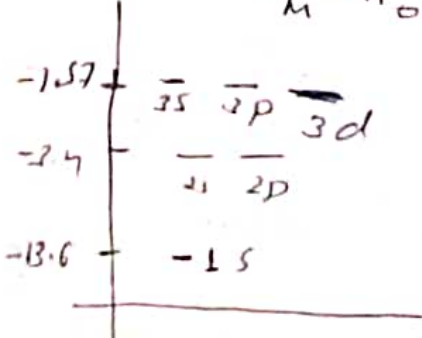 M
-1.57 3s 3p 3d
-3.4 2s 2p
-13.6 -1 s